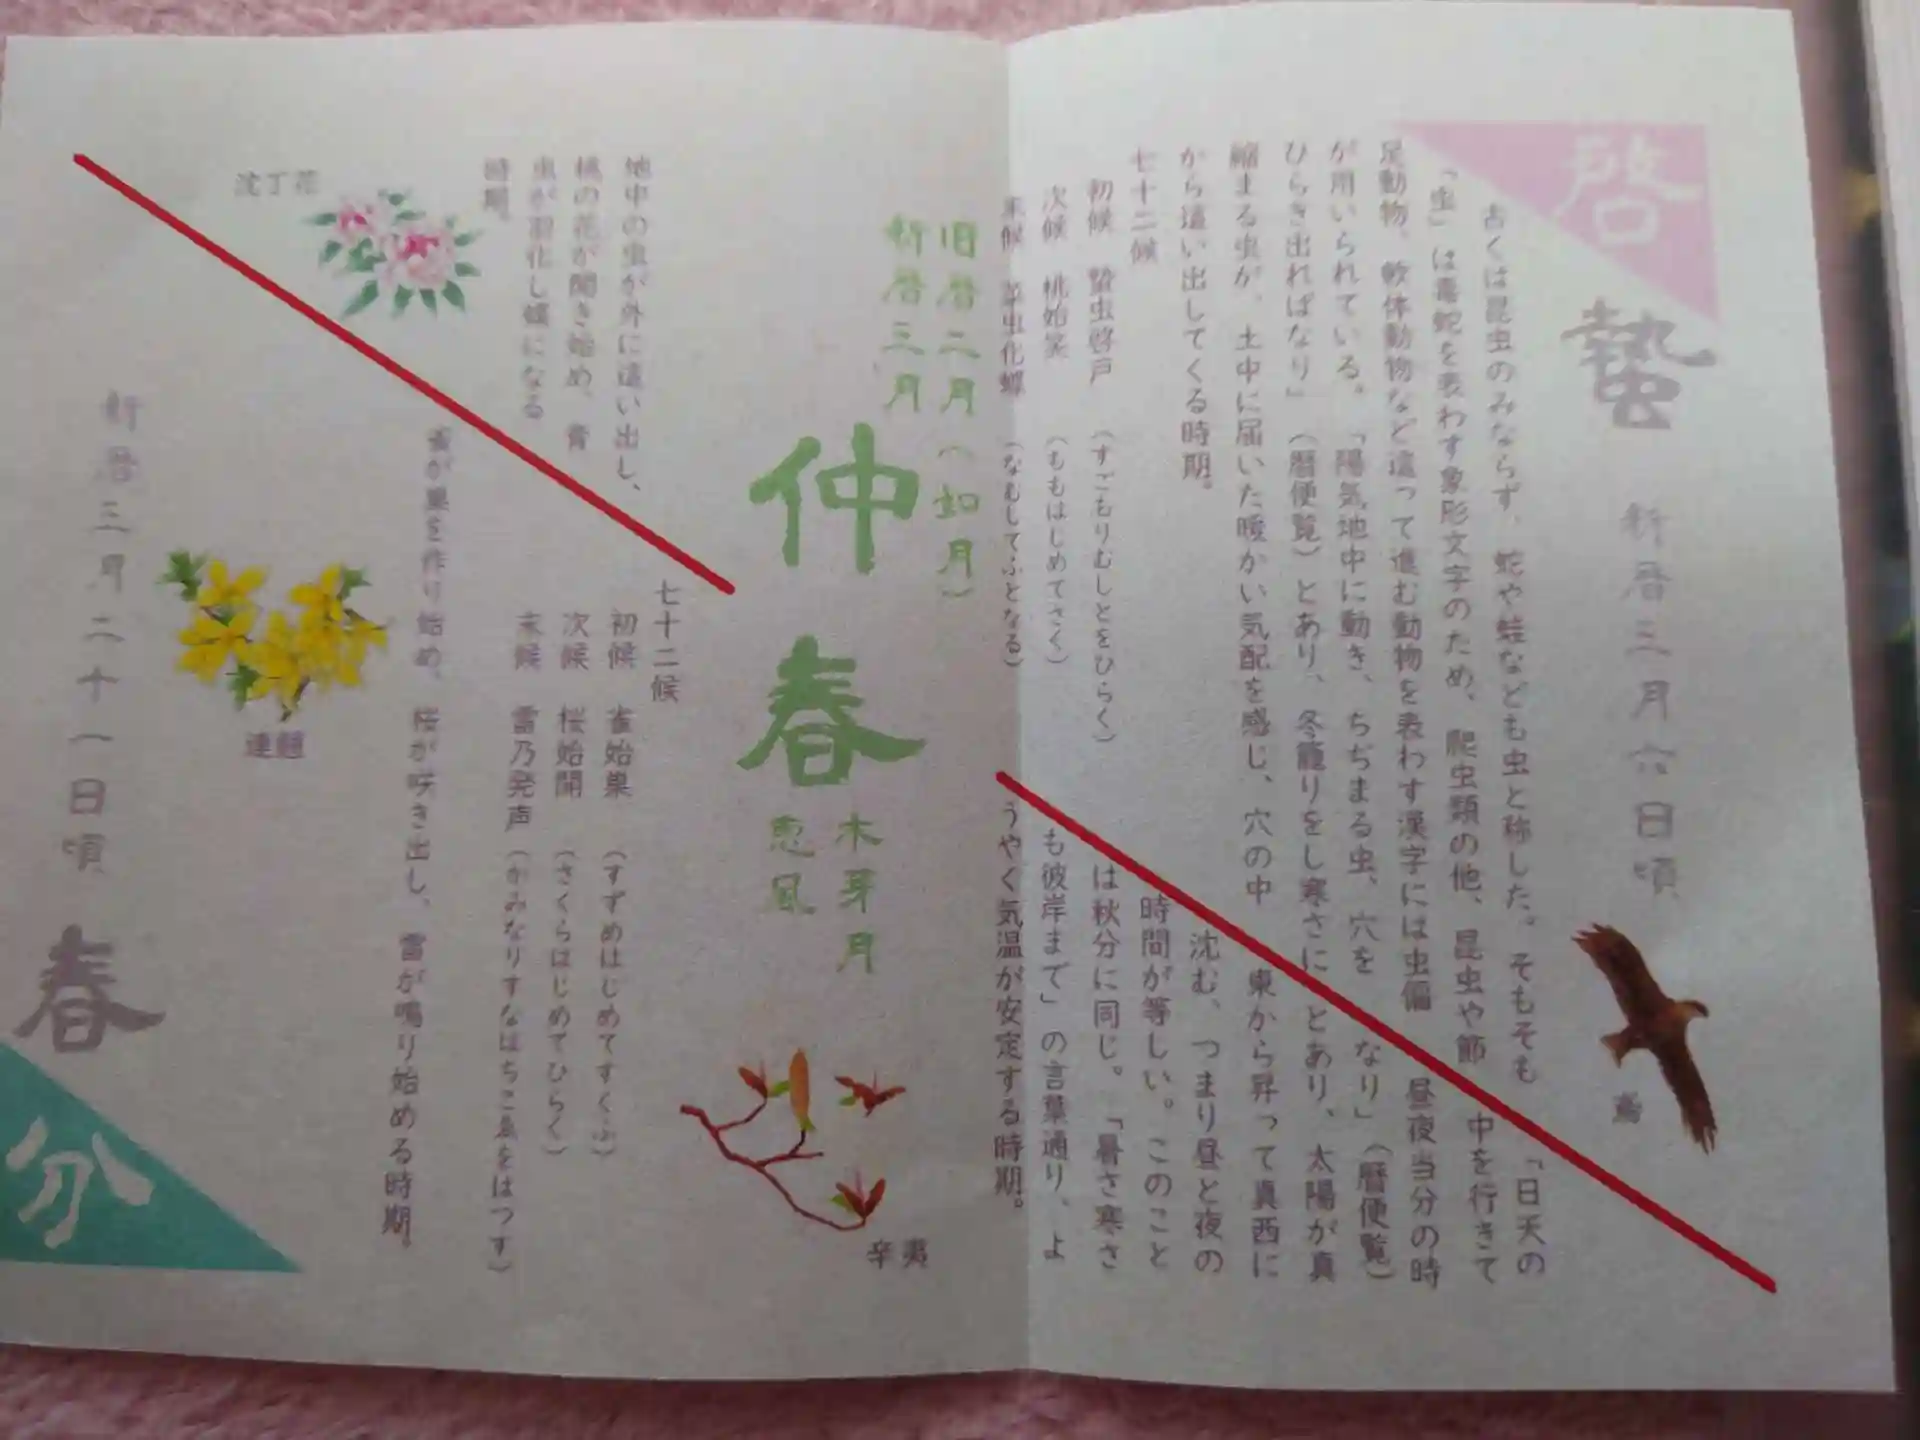 啓蟄 新暦三月六日頃
古くは昆虫のみならず、蛇や蛙なども虫と称した。そもそも
「虫」は毒蛇を表わす象形文字のため、爬虫類の他、昆虫や節
足動物、軟体動物など這って進む動物を表わす漢字には虫偏
が用いられている。「陽気地中に動き、ちぢまる虫、穴を
ひらき出ればなり」(暦便覧)とあり、冬籠りをし寒さに
縮まる虫が、土中に届いた暖かい気配を感じ、穴の中
から這い出してくる時期。
七十二候
初候 蟄虫啓戸 (すごもりむしとをひらく)
次候 桃始笑 (ももはじめてさく)
末候 菜虫化蝶 (なむしてふとなる)
地中の虫が外に這い出し、
桃の花が開き始め、青
虫が羽化し蝶になる
時期。
沈丁花
鳶
旧暦二月(如月)
新暦三月
仲春
木芽月
恵風
辛夷
新暦三月二十一日頃 春分
「日天の
中を行きて
昼夜当分の時
なり」(暦便覧)
とあり、太陽が真
東から昇って真西に
沈む、つまり昼と夜の
時間が等しい。このこと
は秋分に同じ。「暑さ寒さ
も彼岸まで」の言葉通り、よ
うやく気温が安定する時期。
七十二候
初候 雀始巣 (すずめはじめてすくふ)
次候 桜始開 (さくらはじめてひらく)
末候 雷乃発声 (かみなりすなはちこゑをはつす)
雀が巣を作り始め、桜が咲き出し、雷が鳴り始める時期。
連翹